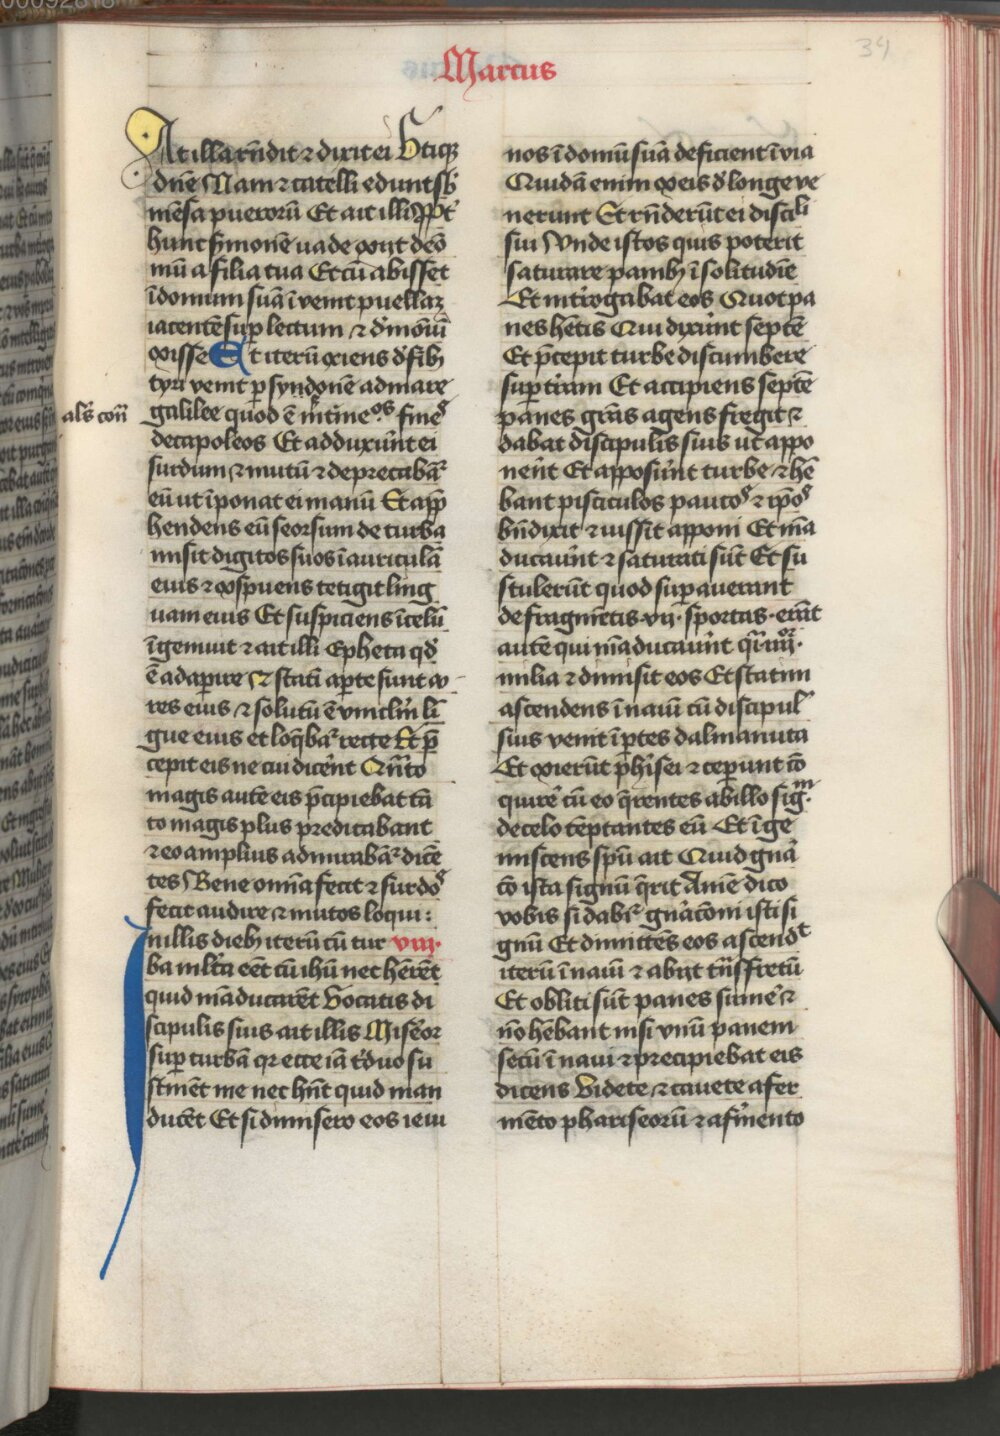 34
Marcus
At illa rn̄dit ⁊ dixit ei Vtiqꝫ
dn̄e Nam ⁊ catelli edunt sb̄
mēsa puerorū Et ait illi Ppt̄
hunc s̄monē uade exiit demō
niū a filia tua Et cū abisset
ī domum suā ī venit puellaꝫ
iacentē sup̄ lectum ⁊ demoniū
exisse Et iterū exiens d̄ finibꝫ
tyri venit ꝑ syndonē ad mare
als̄ con̄
galilee quod ē int̄ medios fines
decapoleos Et adduxūnt ei
surdum ⁊ mutū ⁊ deprecabāt
eū ut īponat ei manū Et app̄
hendens eū seorsum de turba
misit digitos suos ī auriculā
eius ⁊ exspuens tetigit ling
uam eius Et suspiciens ī celū
īgemuit ⁊ ait illi Epheta qd̄
ē adaꝑire ⁊ statī aꝑte sunt au
res eius ⁊ solutū ē vinclm̄ lī
gue eius et loq̄bat̄ recte Et p̄
cepit eis ne cui dicēnt Qn̄to
magis autē eis p̄cipiebat tā
to magis plus predicabant
⁊ eo amplius admirabāt dicē
tes Bene omīa fecit ⁊ surdos
fecit audire ⁊ mutos loqui :
In illis diebꝫ iterū cū tur viij.
ba ml̄ta eēt cū ihū nec hēret
quid māducarēt Vocatis di
scipulis suis ait illis Misēor
suꝑ turbā qr ecce iā t̄duo su
stinēt me nec hn̄t quid man
ducēt Et si dimisero eos ieiu
nos ī domū suā deficient ī via
Quidā enim ex eis d̄ longe ve
nerunt Et rn̄derūt ei discili
sui Vnde istos quis poterit
saturare panibꝫ ī solitudīe
Et int̄rogabat eos Quot pa
nes hētis Qui dixūnt septē
Et p̄cepit turbe discumbere
suꝑ t̄ram Et accipiens septē
panes grās agens fregit ⁊
dabat discipulis suis ut appo
nēnt Et apposūnt turbe ⁊ hē
bant pisciculos paucos ⁊ ip̄os
bn̄dixit ⁊ iussit apponi Et mā
ducaūnt ⁊ saturati sūt Et su
stulerūt quod suꝑauerant
de fragmētis .vij. sportas. erāt
autē qui māducaūnt qͣi .iiijor.
milia ⁊ dimisit eos Et statim
ascendens ī nauī cū discipul
suis venit ī ꝑtes dalmanuta
Et exierūt ph̄isei ⁊ ceperunt cō
quirē cū eo q̄rentes ab illo sigm.
de celo tēptantes eū Et ī ge
miscens spū ait Quid gn̄a
cō ista signū q̄rit Amē dico
vobis si dabit̄ gn̄acōni isti si
gnū Et dimittēs eos ascendt
iterū ī nauī ⁊ abijt tn̄s fretū
Et obliti sūt panes sumē ⁊
nō hēbant nisi vnū panem
secū ī naui ⁊ precipiebat eis
dicens Videte ⁊ cauete a fer
mēto phariseorū ⁊ a fm̄ento